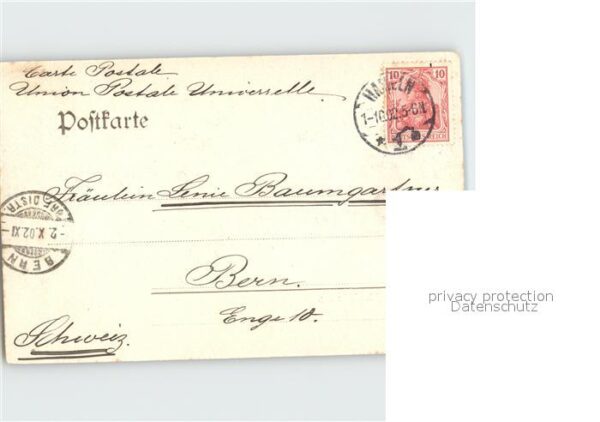 Carte Postale
Union Postale Universelle.
Postkarte
10 10
HAMELN
1-10.02.5-6N
Fräulein Lenie Baumgartner
-2.X.02.XI
BERN
Bern.
Enge 18.
Schweiz.
privacy protection
Datenschutz